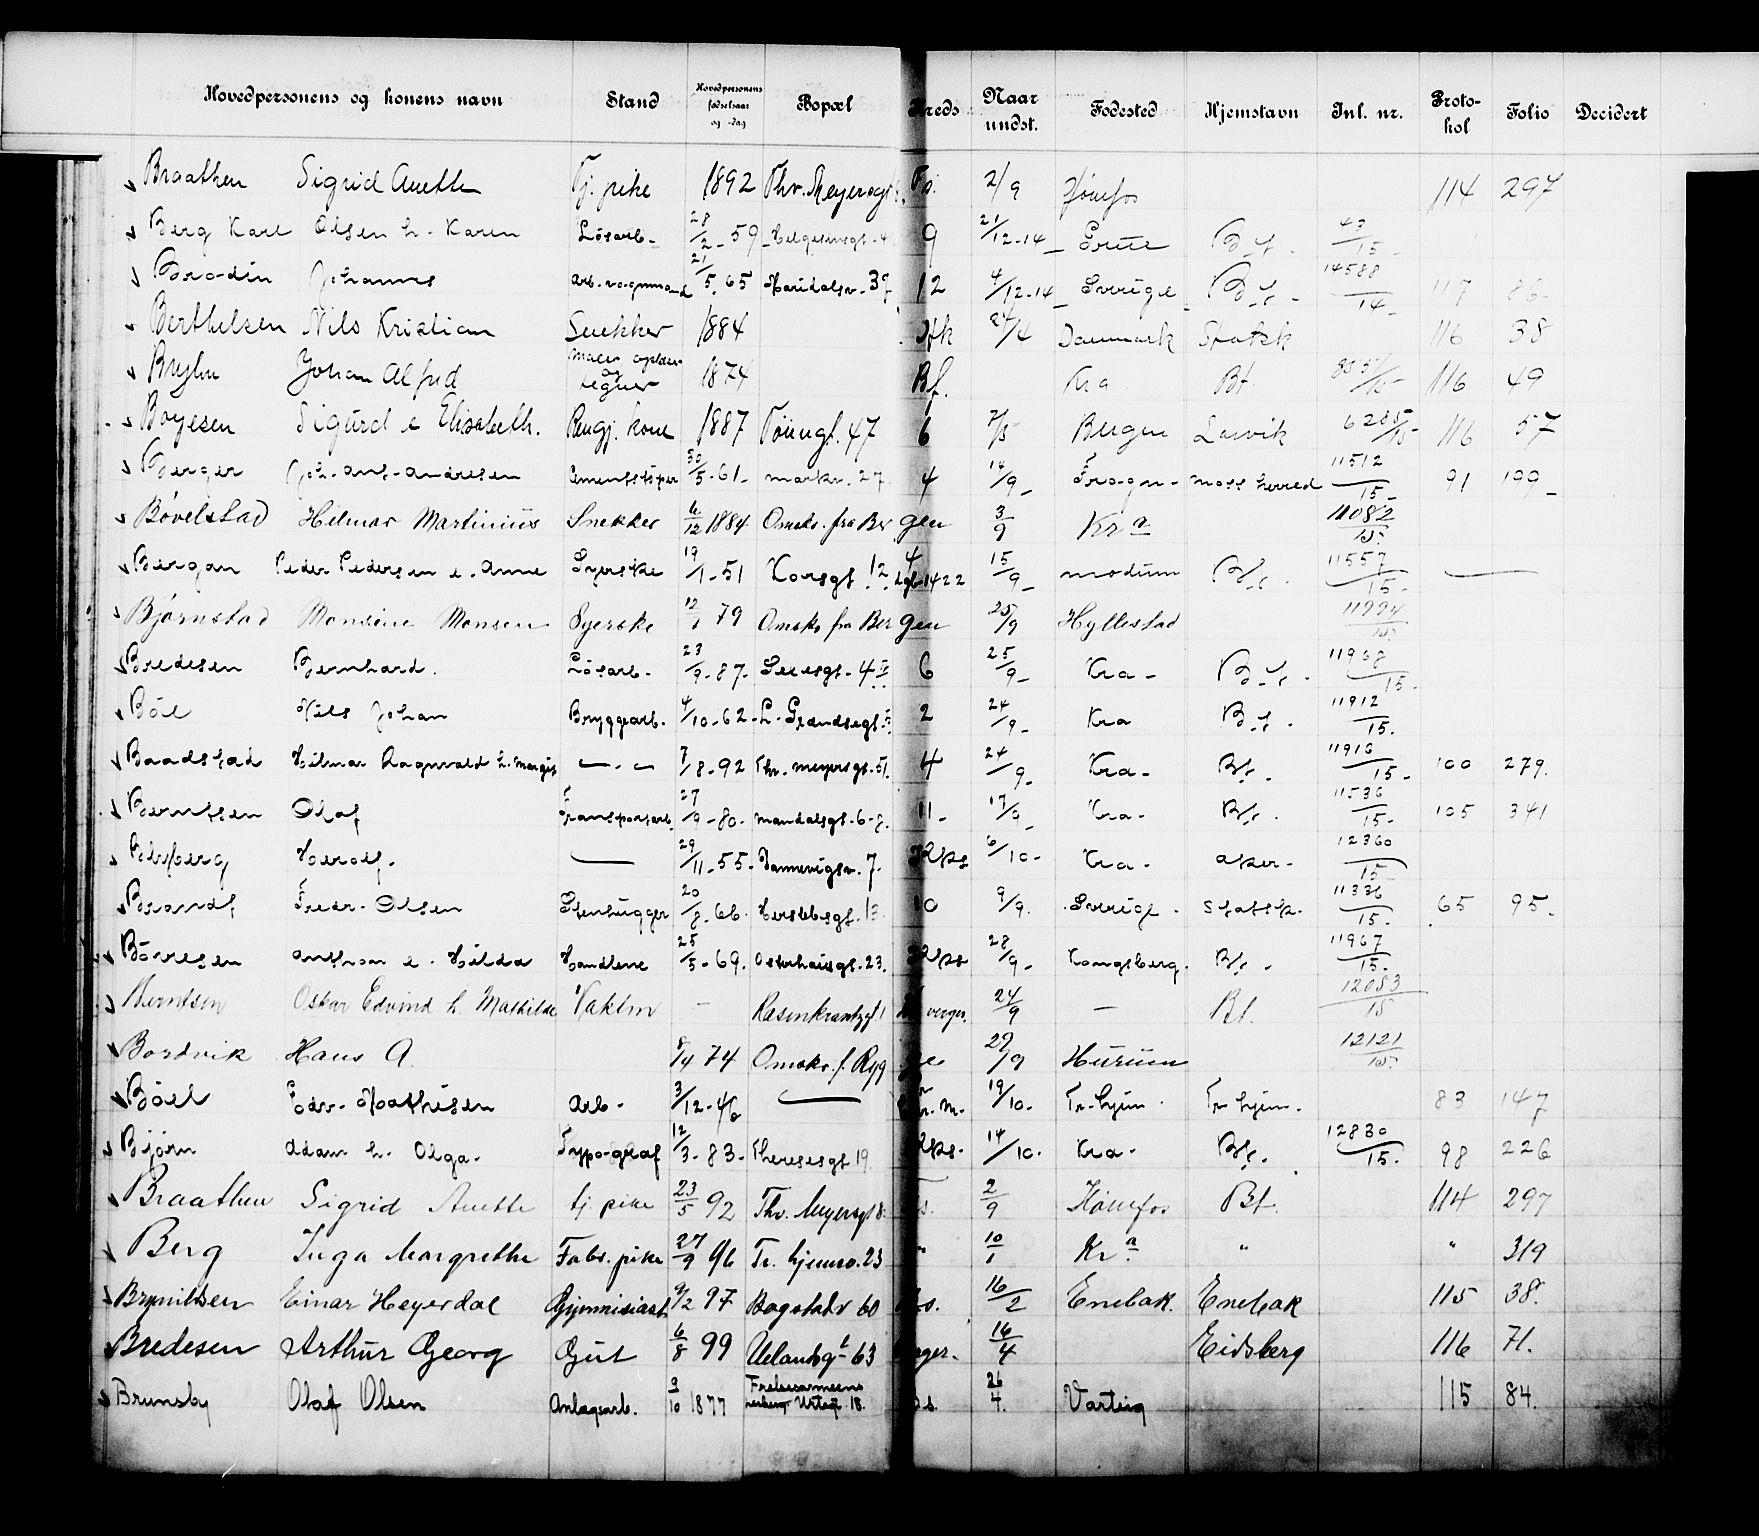 Hovedpersonens og konens navn Stand Hovedpersonens fødselsaar og -dag Bopæl Kreds Naar undst. Fødested Hjemstavn Inl. nr. Proto-kol Folio Decidert
Braathen Sigrid Anette Tj. pike 1892 Thv. Meyersgt Fs. 2/9 Hönefos 114 297
Berg Karl Olsen h. Karen Lösarb. 28/2 - 59 Helgesensgt. 4 9 21/12-14 Grue B.f. 43/15
Brodin Johannes Arb. vognmand 21/5. 65 Maridalsv. 37 12 4/12-14 Sverige B.f. 14588/14 117 86
Berthelsen Nils Kristian Snekker 1884 Ofk /4 Danmark Statsk 116 38
Johan Alfred og tegner 1874 Bf. Kra Bf. 116 49
Boyesen Sigurd e Elisabeth. Rengj. kone 1887 Töiengt. 47 6 7/5 Bergen Larvik 6285/15 116 57
Berger Joh. Ant. Andresen Cementstöper 30/5 - 61 Markv. 27 4 14/9 Frogn Moss herred 11512/15 91 199
Bøvelstad Hilmar Martinius Snekker 6/12 1884 Omsk. fra Bergen 3/9 Kra 11082/15
Bergan Peder Pedersen e. Anne Syerske 19/1 - 51 Korsgt. 12 4 Lgb. 1422 15/9 Modum B.f. 11557/15
Bjørnstad Monsine Monsen Syerske 12/1 79 Omsk. fra Bergen 25/9 Hyllestad 11994/15
Bredesen Bernhard. Lösarb. 23/9 - 87 6 25/9 Kra B.f. 11968/15
Böe Nils Johan Bryggearb. 4/10 - 62 L. Strandsegt. 2 24/9 Kra B.f. 11912/15
Baadstad Hilmar Ragnvald h. Margit — " — 7/8 - 92 Thv. Meyersgt. 51. 4 24/9 Kra B.f. 11916/15 100 279.
Berntsen Olaf Transportarb. 27/9 - 80 Mandalsgt. 6-8. 11 17/9 Kra B.f. 11536/15 105 341
Herolf — 29/11 - 55 Jannevigsv. 7. 6/10 Kra Aker 12360/15
Brandt Fredr. Olsen Stenhugger 20/8 - 66 Herslebsgt. 13 10 9/9. Sverige Statsk. 11336/15 65 95.
Bövesen Anthon e. Hilda Handlene 25/5 - 69. Osterhausgt. 23. 28/9 Kongsberg. B.f. 11967/15
Berntsen Oskar Edvind h. Mathilde Vaktm — Rosenkrantzgt. 1 verger. 24/9 — Bf. 12053/15
Bordvik Hans A. 8/4 74 Omsk. f. Rygge 29/9 Hurum 12121/15
Böe Edv. Mathisen Arb. 3/12 - 46 — 19/10. Tr. hjem. Tr hjem. 83 147
Bjørn Adam h. Olga. Typograf 12/3 - 83 Theresesgt 19 14/10. Kra B.f. 12830/15 98 226
Braathen Sigrid Anette tj. pike 23/5 92 Thv. Meyersgt 8. Fs. 2/9 Hönefos Bf. 114 297
Berg Inga Margrethe Fabr. pike 27/9 96 Tr. hjemsv. 23 " 10/1 Kra " " 319
Brynildsen Einar Heyerdal Gymnisiast 9/2 97 Bogstadv 60 Fs. 16/2 Enebak. Enebak 115 38.
Bredesen Arthur Georg Gut 6/8 99 Uelandsgt 63 verger. 16/4 Eidsberg 116 71.
Brunsby Olaf Olsen Anlægsarb. 9/10 1877 Frelsesarmeens herberge Urtegt 18. Fs. 26/4. Varteig 115 84.